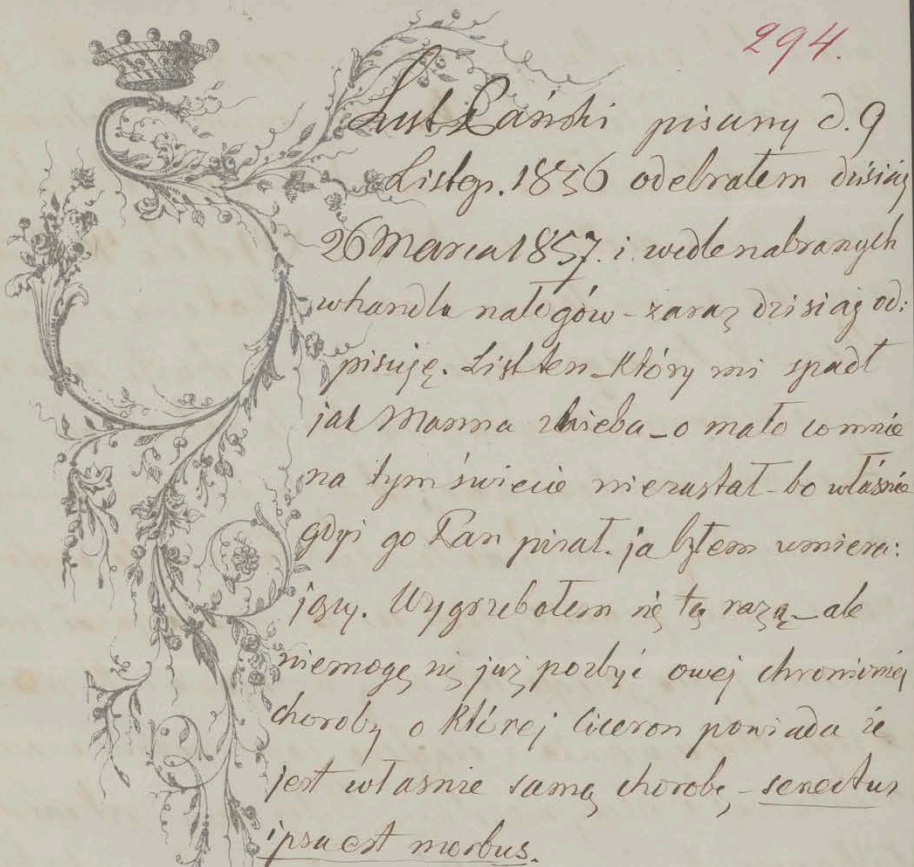 294.
List Pański pisany d. 9
Listop. 1856 odebrałem dzisiaj
26 Marca 1857. i wedle nabranych
w handlu nałogów - zaraz dzisiaj od:
pisuję. List ten - który mi spadł
jak Manna z Nieba - o mało co mnie
na tym świecie niezastał - bo właśnie
gdy go Pan pisał. ja byłem umiera:
jący. Wygrzebołem się tą razą - ale
niemogę się już pozbyć owej chronicznej
choroby o której Ciceron powiada że
jest własnie samą chorobą, - senectus
ipsa est morbus.